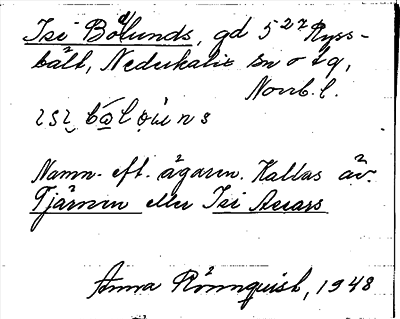 Isi Bölunds, gd 5²⁷ Ryss-
bält, Nederkalix sn o tg,
Norrb. l.
Namn. eft. ägaren. Kallas äv.
Tjärnen eller Isi Anars
Anna Rönnquist, 1948